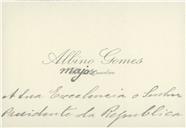 Albino Gomes
major
A Sua Excelencia o Senhor
Presidente da Republica